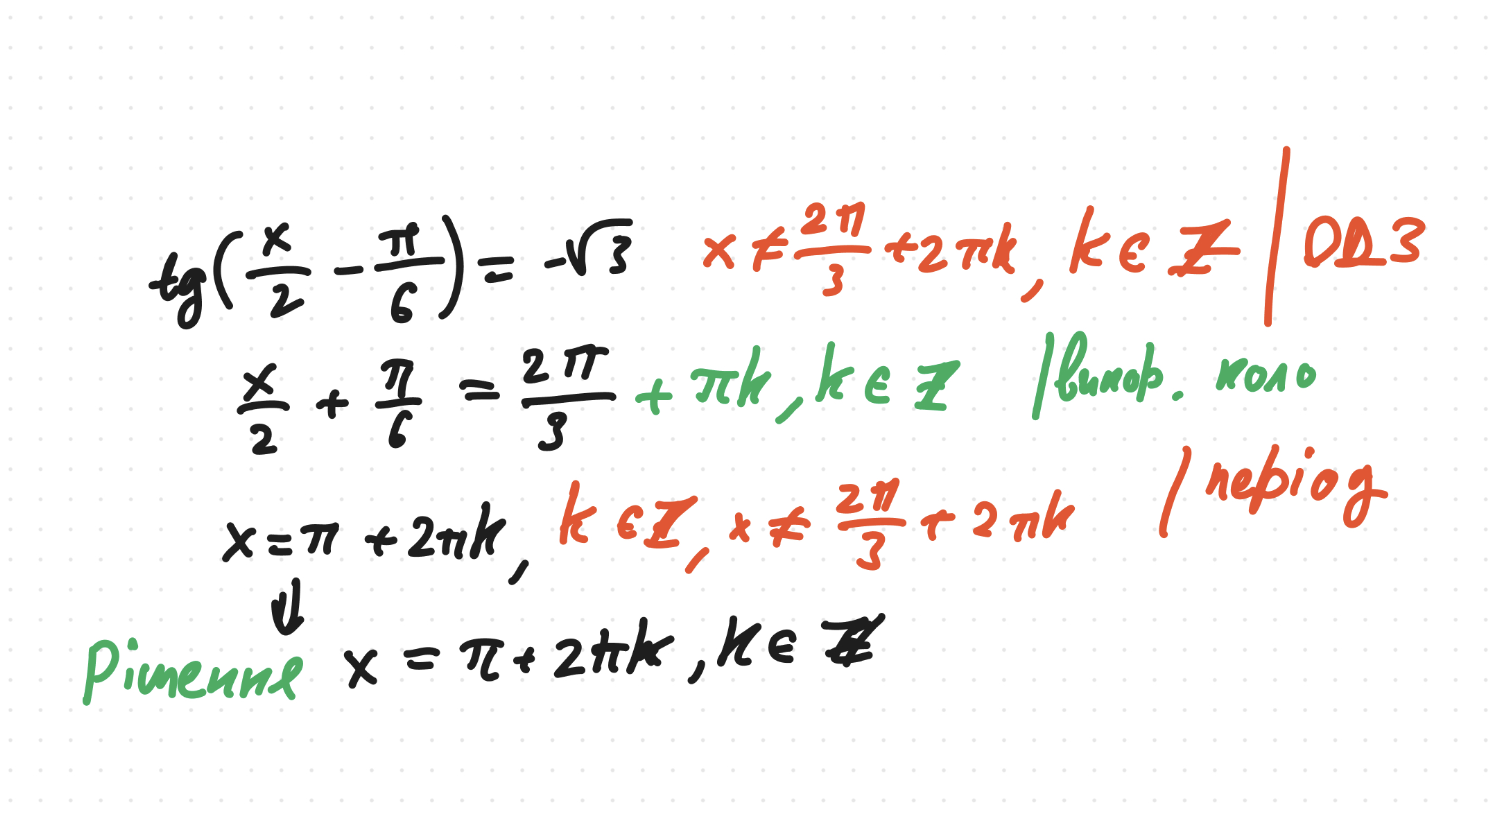 tg(x/2 - π/6) = -√3 x ≠ 2π/3 + 2πk, k ∈ Z | ОДЗ
x/2 + π/6 = 2π/3 + πk, k ∈ Z | викор. коло
x = π + 2πk, k ∈ Z, x ≠ 2π/3 + 2πk | період
Рішення x = π + 2πk, k ∈ Z